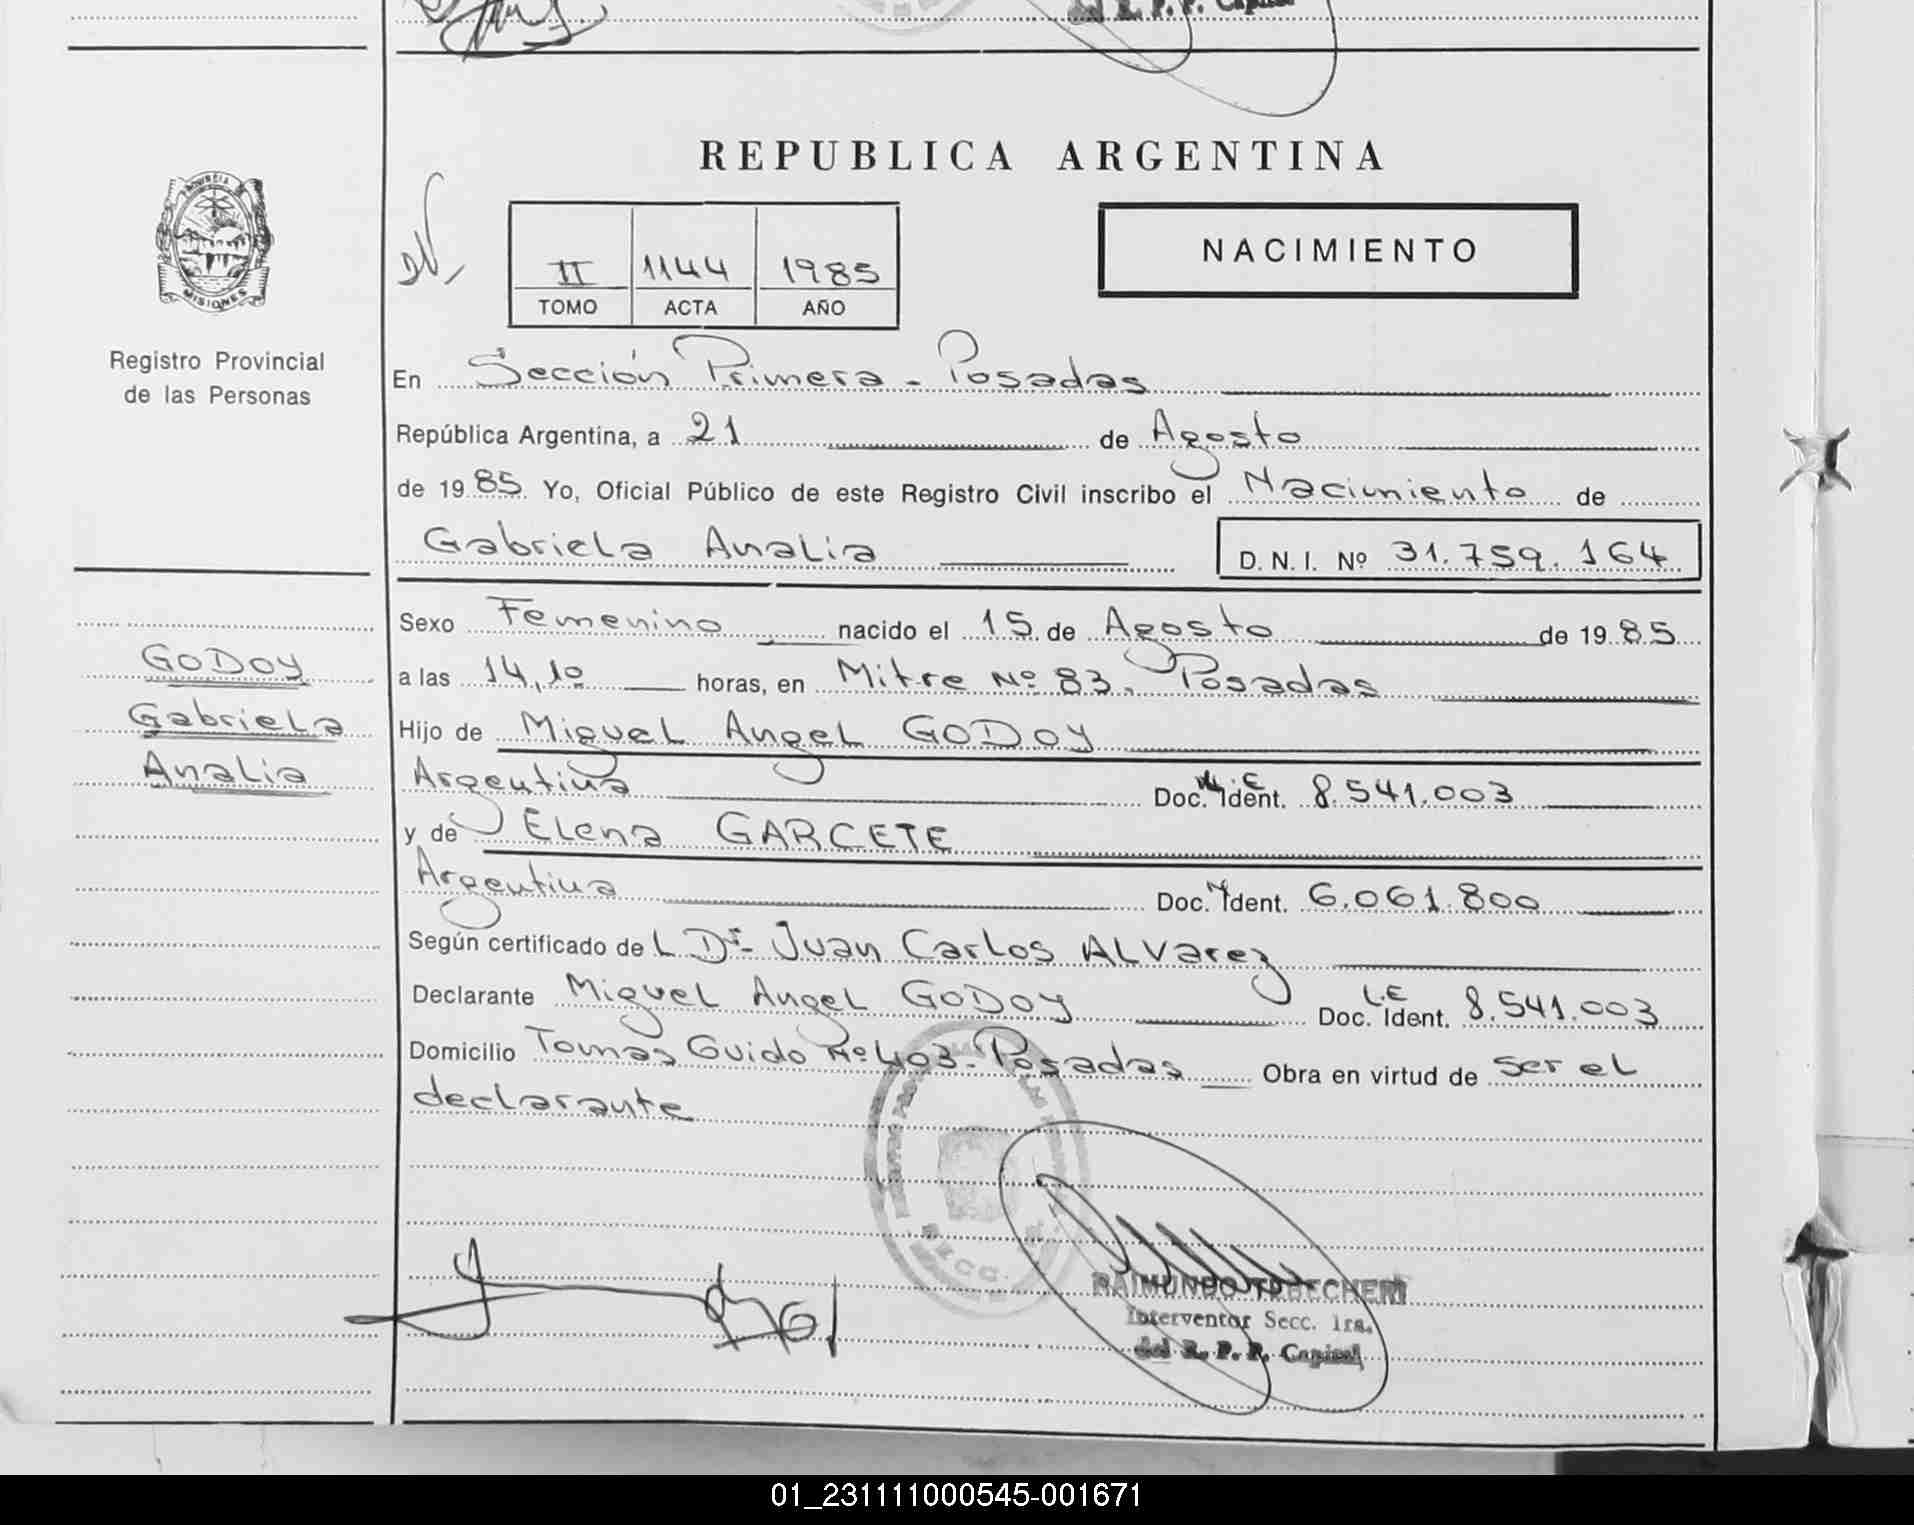 del R. P. P. Capital
REPUBLICA ARGENTINA
PROVINCIA DE
MISIONES
Registro Provincial
de las Personas
II 1144 1985
TOMO ACTA AÑO
NACIMIENTO
En Sección Primera - Posadas
República Argentina, a 21 de Agosto
de 1985. Yo, Oficial Público de este Registro Civil inscribo el Nacimiento de
Gabriela Analia D. N. I. Nº 31.759.164
Sexo Femenino nacido el 15 de Agosto de 1985
a las 14,10 horas, en Mitre Nº 83, Posadas
Hijo de Miguel Angel GODOY
Argentina Doc. Ident. 8.541.003
y de Elena GARCETE
Argentina Doc. Ident. 6.061.800
Según certificado del Dr. Juan Carlos Alvarez
Declarante Miguel Angel GODOY L.E Doc. Ident. 8.541.003
Domicilio Tomas Guido Nº 403 - Posadas Obra en virtud de ser el
declarante
GODOY
Gabriela
Analia
SECC.
RAIMUNDO TREBECHERI
Interventor Secc. 1ra.
del R. P. P. Capital
01_231111000545-001671